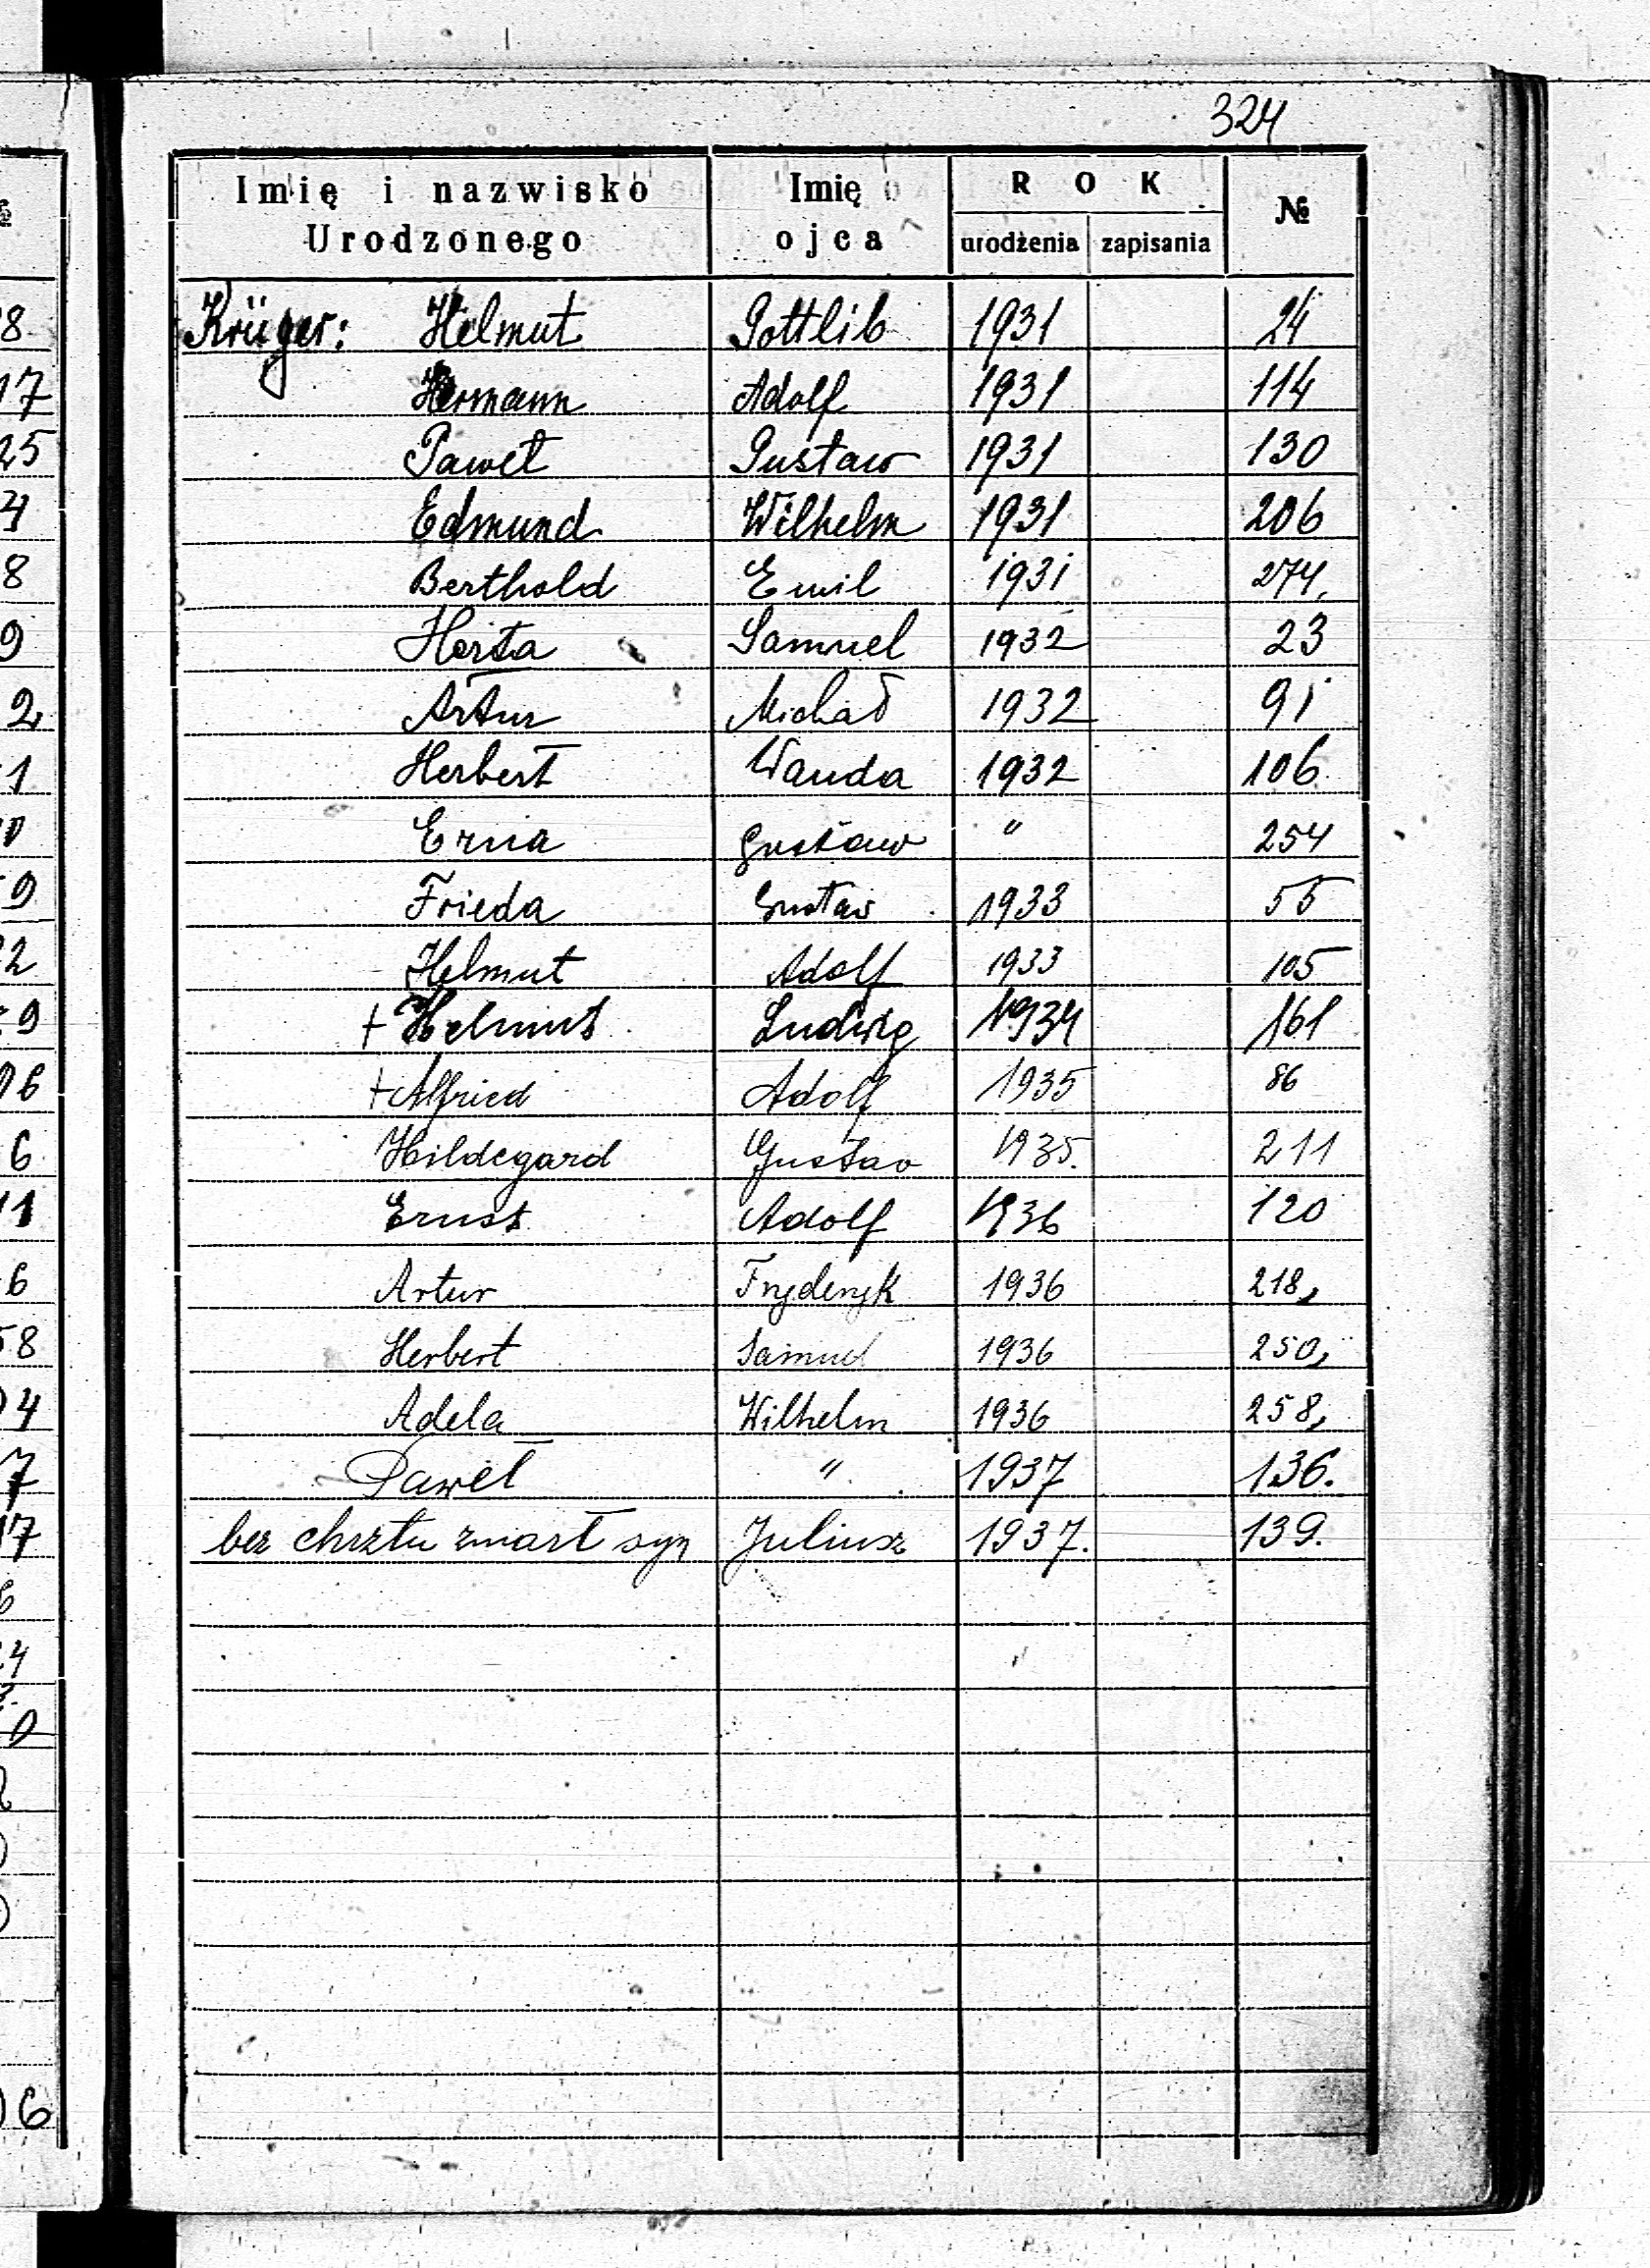 324
Imię i nazwisko Urodzonego Imię ojca ROK urodzenia zapisania №
Krüger: Helmut Gottlib 1931 24
Hermann Adolf 1931 114
Paweł Gustaw 1931 130
Edmund Wilhelm 1931 206
Berthold Emil 1931 274,
Herta Samuel 1932 23
Artur Michał 1932 91
Herbert Wanda 1932 106
Erna Gustaw " 254
Frieda Gustav 1933 55
Helmut Adolf 1933 105
+ Helmut Ludwig 1934 161
+ Alfried Adolf 1935 86
Hildegard Gustav 1935. 211
Ernst Adolf 1936 120
Artur Fryderyk 1936 218,
Herbert Samuel 1936 250,
Adela Wilhelm 1936 258,
Paweł " 1937 136.
bez chrztu zmarł syn Juliusz 1937. 139.